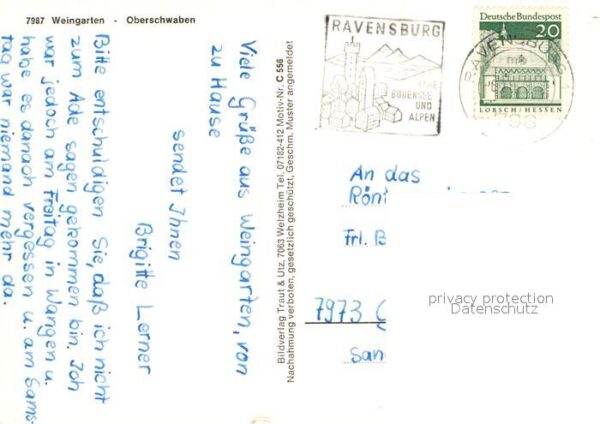 7987 Weingarten - Oberschwaben
Viele Grüße aus Weingarten, von
zu Hause
sendet Ihnen
Brigitte Lerner
Bitte entschuldigen Sie, daß ich nicht
zum Ade sagen gekommen bin. Ich
war jedoch am Freitag in Wangen u.
habe es danach vergessen u. am Sams-
tag war niemand mehr da.
Bildverlag Traut & Utz, 7063 Welzheim Tel. 07182-412 Motiv-Nr. C 556
Nachahmung verboten, gesetzlich geschützt, Geschm. Muster angemeldet
RAVENSBURG
BODENSEE
UND
ALPEN
RAVENSBURG
Deutsche Bundespost
20
LORSCH/HESSEN
An das
Rönt
Frl. B
7973
San
privacy protection
Datenschutz